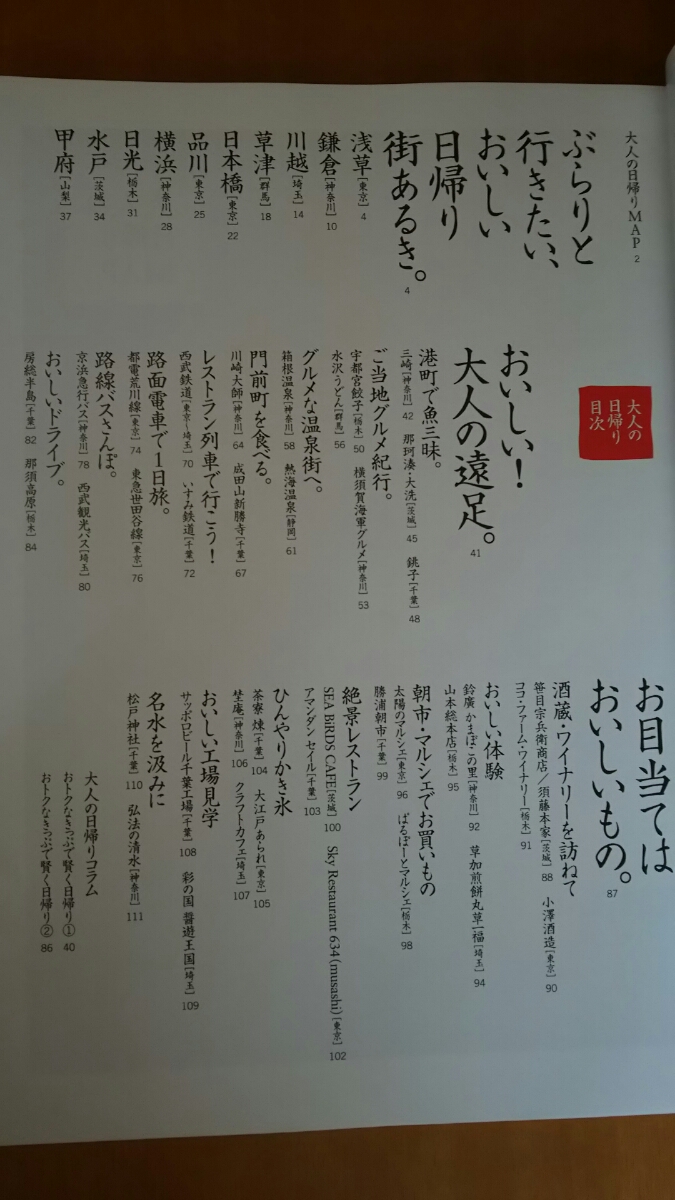 大人の日帰りMAP 2
ぶらりと
行きたい、
おいしい
日帰り
街あるき。 4
浅草［東京］ 4
鎌倉［神奈川］ 10
川越［埼玉］ 14
草津［群馬］ 18
日本橋［東京］ 22
品川［東京］ 25
横浜［神奈川］ 28
日光［栃木］ 31
水戸［茨城］ 34
甲府［山梨］ 37
大人の
日帰り
目次
おいしい！
大人の遠足。 41
港町で魚三昧。
三崎［神奈川］ 42 那珂湊・大洗［茨城］ 45 銚子［千葉］ 48
ご当地グルメ紀行。
宇都宮餃子［栃木］ 50 横須賀海軍グルメ［神奈川］ 53
水沢うどん［群馬］ 56
グルメな温泉街へ。
箱根温泉［神奈川］ 58 熱海温泉［静岡］ 61
門前町を食べる。
川崎大師［神奈川］ 64 成田山新勝寺［千葉］ 67
レストラン列車で行こう！
西武鉄道［東京〜埼玉］ 70 いすみ鉄道［千葉］ 72
路面電車で1日旅。
都電荒川線［東京］ 74 東急世田谷線［東京］ 76
路線バスさんぽ。
京浜急行バス［神奈川］ 78 西武観光バス［埼玉］ 80
おいしいドライブ。
房総半島［千葉］ 82 那須高原［栃木］ 84
お目当ては
おいしいもの。 87
酒蔵・ワイナリーを訪ねて
笹目宗兵衛商店／須藤本家［茨城］ 88 小澤酒造［東京］ 90
ココ・ファーム・ワイナリー［栃木］ 91
おいしい体験
鈴廣 かまぼこの里［神奈川］ 92 草加煎餅丸草一福［埼玉］ 94
山本総本店［栃木］ 95
朝市・マルシェでお買いもの
太陽のマルシェ［東京］ 96 ぱるぽーとマルシェ［栃木］ 98
勝浦朝市［千葉］ 99
絶景レストラン
SEA BiRDS CAFE［茨城］ 100 Sky Restaurant 634（musashi）［東京］ 102
アマンダン セイル［千葉］ 103
ひんやりかき氷
茶寮 煉［千葉］ 104 大江戸あられ［東京］ 105
埜庵［神奈川］ 106 クラフトカフェ［埼玉］ 107
おいしい工場見学
サッポロビール千葉工場［千葉］ 108 彩の国 醤遊王国［埼玉］ 109
名水を汲みに
松戸神社［千葉］ 110 弘法の清水［神奈川］ 111
大人の日帰りコラム
おトクなきっぷで賢く日帰り① 40
おトクなきっぷで賢く日帰り② 86